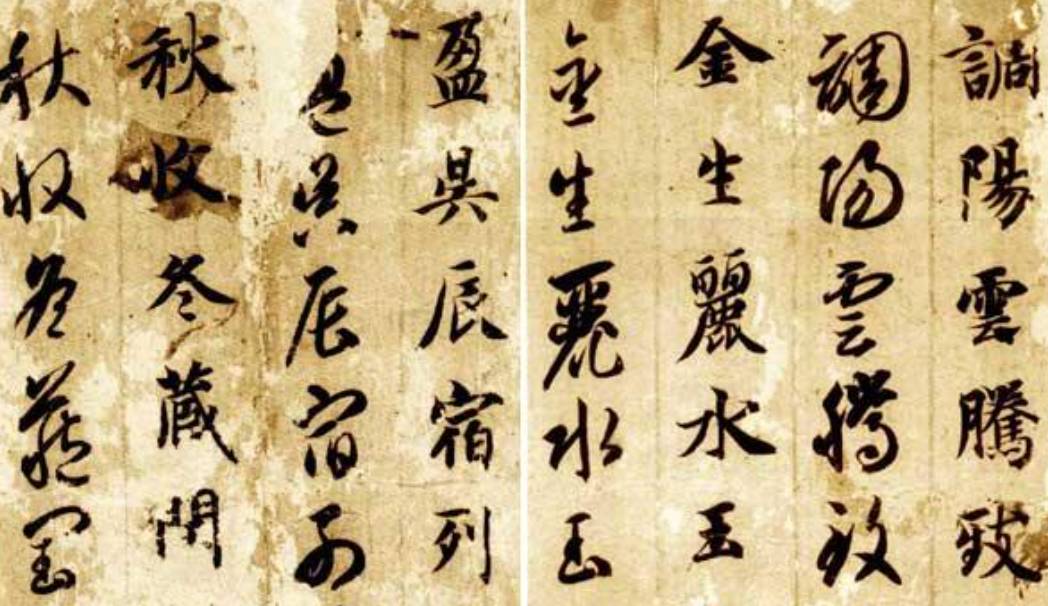 調陽雲騰致
調陽雲騰致
金生麗水玉
金生麗水玉
盈昃辰宿列
盈昃辰宿列
秋收冬藏閏
秋收冬藏閏